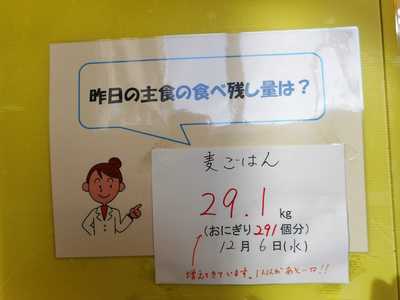 昨日の主食の食べ残し量は？
麦ごはん
29.1 kg
(おにぎり291個分)
12月6日(水)
増えてきています。1人1人があと一口!!